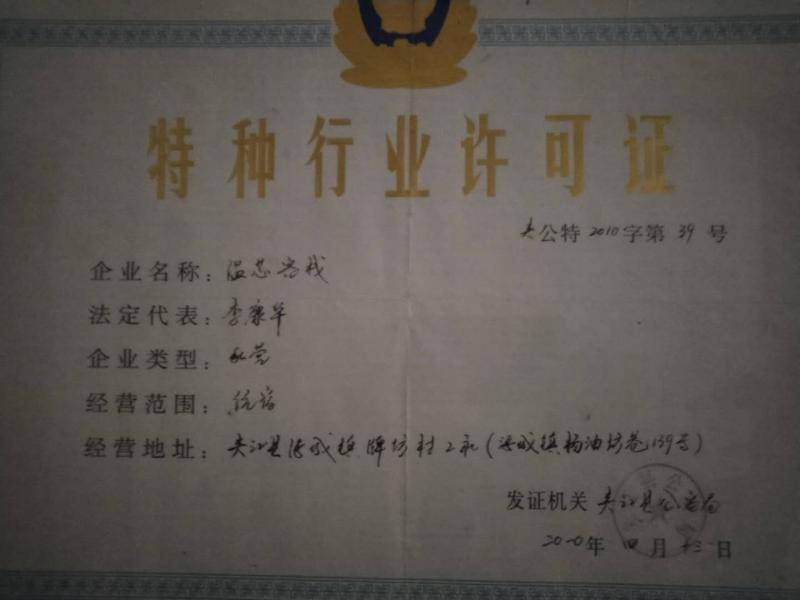 特种行业许可证
夹公特2010字第39号
企业名称：温芯客栈
法定代表：李康华
企业类型：私营
经营范围：住宿
经营地址：夹江县漹城镇牌坊村2社（漹城镇杨油坊巷139号）
发证机关 夹江县公安局
2010年 四月 十三日